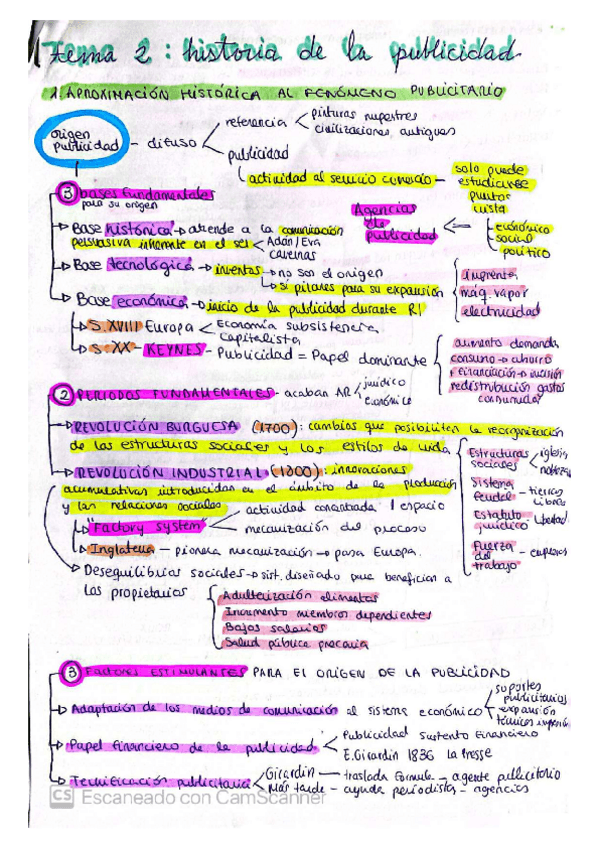 Tema 2: historia de la publicidad
1. APROXIMACIÓN HISTÓRICA AL FENÓMENO PUBLICITARIO
origen publicidad - difuso
referencia
pinturas rupestres
civilizaciones antiguas
publicidad
actividad al servicio comercio - solo puede estudiarse
puntos vista
económico
social
político
Agencias de publicidad
3 bases fundamentales
para su origen
Base histórica → atiende a la comunicación
persuasiva inherente en el ser
Adán/Eva
cavernas
Base tecnológica → inventos
no son el origen
sí pilares para su expansión
imprenta
máq. vapor
electricidad
Base económica → inicio de la publicidad durante RI
S. XVIII Europa
Economía subsistencia
Capitalista
S. XX - KEYNES - Publicidad = Papel dominante
aumento demanda
consumo → ahorro
financiación →
redistribución gastos
consumidor
2 PERIODOS FUNDAMENTALES - acaban AR
jurídico
económico
REVOLUCIÓN BURGUESA (1700): cambios que posibiliten la reorganización
de las estructuras sociales y los estilos de vida
REVOLUCIÓN INDUSTRIAL (1800): innovaciones
acumulativas introducidas en el ámbito de la producción
y las relaciones sociales
Estructuras sociales
iglesia
nobleza
Sistema feudal - tierras libres
Estatuto jurídico - libertad
Fuerza del trabajo - empresas
"Factory system"
actividad concentrada 1 espacio
mecanización del proceso
Inglaterra - pionera mecanización → pasa Europa.
Desequilibrios sociales → sist. diseñado para beneficiar a
los propietarios
Adulterización alimentos
Incremento miembros dependientes
Bajos salarios
Salud pública precaria
3 FACTORES ESTIMULANTES PARA EL ORIGEN DE LA PUBLICIDAD
Adaptación de los medios de comunicación al sistema económico
soportes publicitarios
expansión
técnicas impresión
Papel financiero de la publicidad
Publicidad sustento financiero
E. Girardin 1836 La Presse
Tecnificación publicitaria
Girardin - traslada fórmula - agente publicitario
Más tarde - ayuda periodista - agencias
CS Escaneado con CamScanner